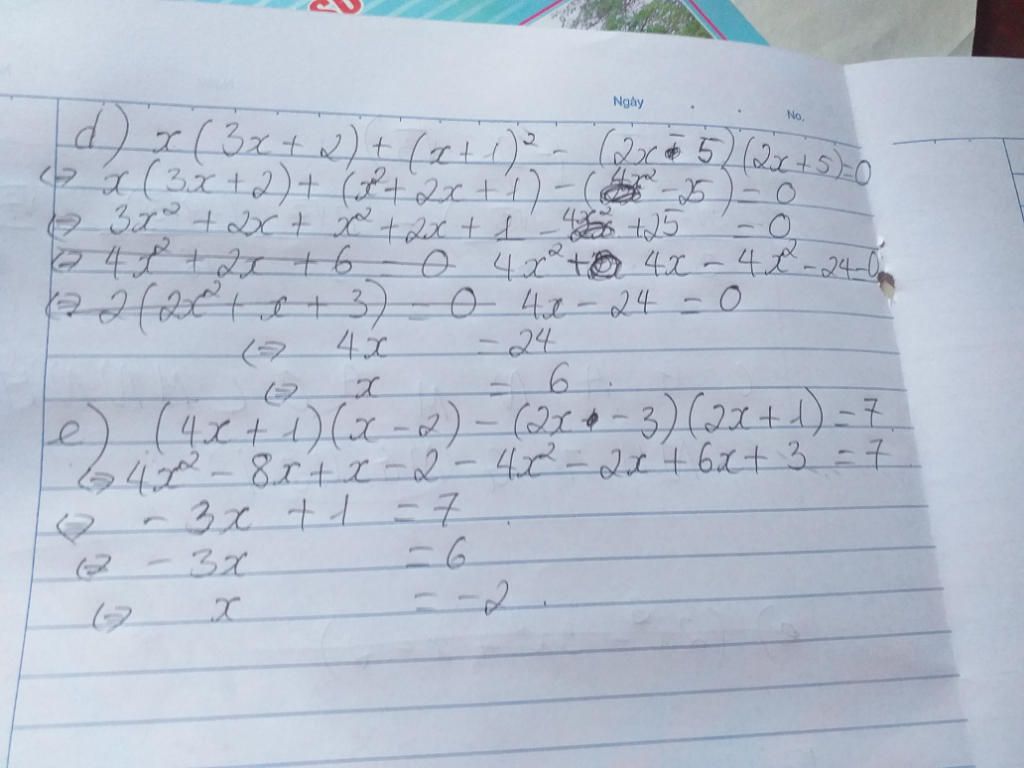 SU
Ngày
No.
d) x(3x+2)+(x+1)² - (2x-5)(2x+5)=0
⇔ x(3x+2)+(x²+2x+1)-(4x²-25)=0
⇔ 3x²+2x+x²+2x+1-4x²+25 =0
⇔ 4x²+2x+6=0 4x²+4x-4x²-24=0
⇔ 2(2x²+x+3)=0 4x-24=0
⇔ 4x =24
⇔ x = 6.
e) (4x+1)(x-2)-(2x-3)(2x+1)=7
⇔ 4x²-8x+x-2-4x²-2x+6x+3=7
⇔ -3x+1=7
⇔ -3x =6
⇔ x =-2.